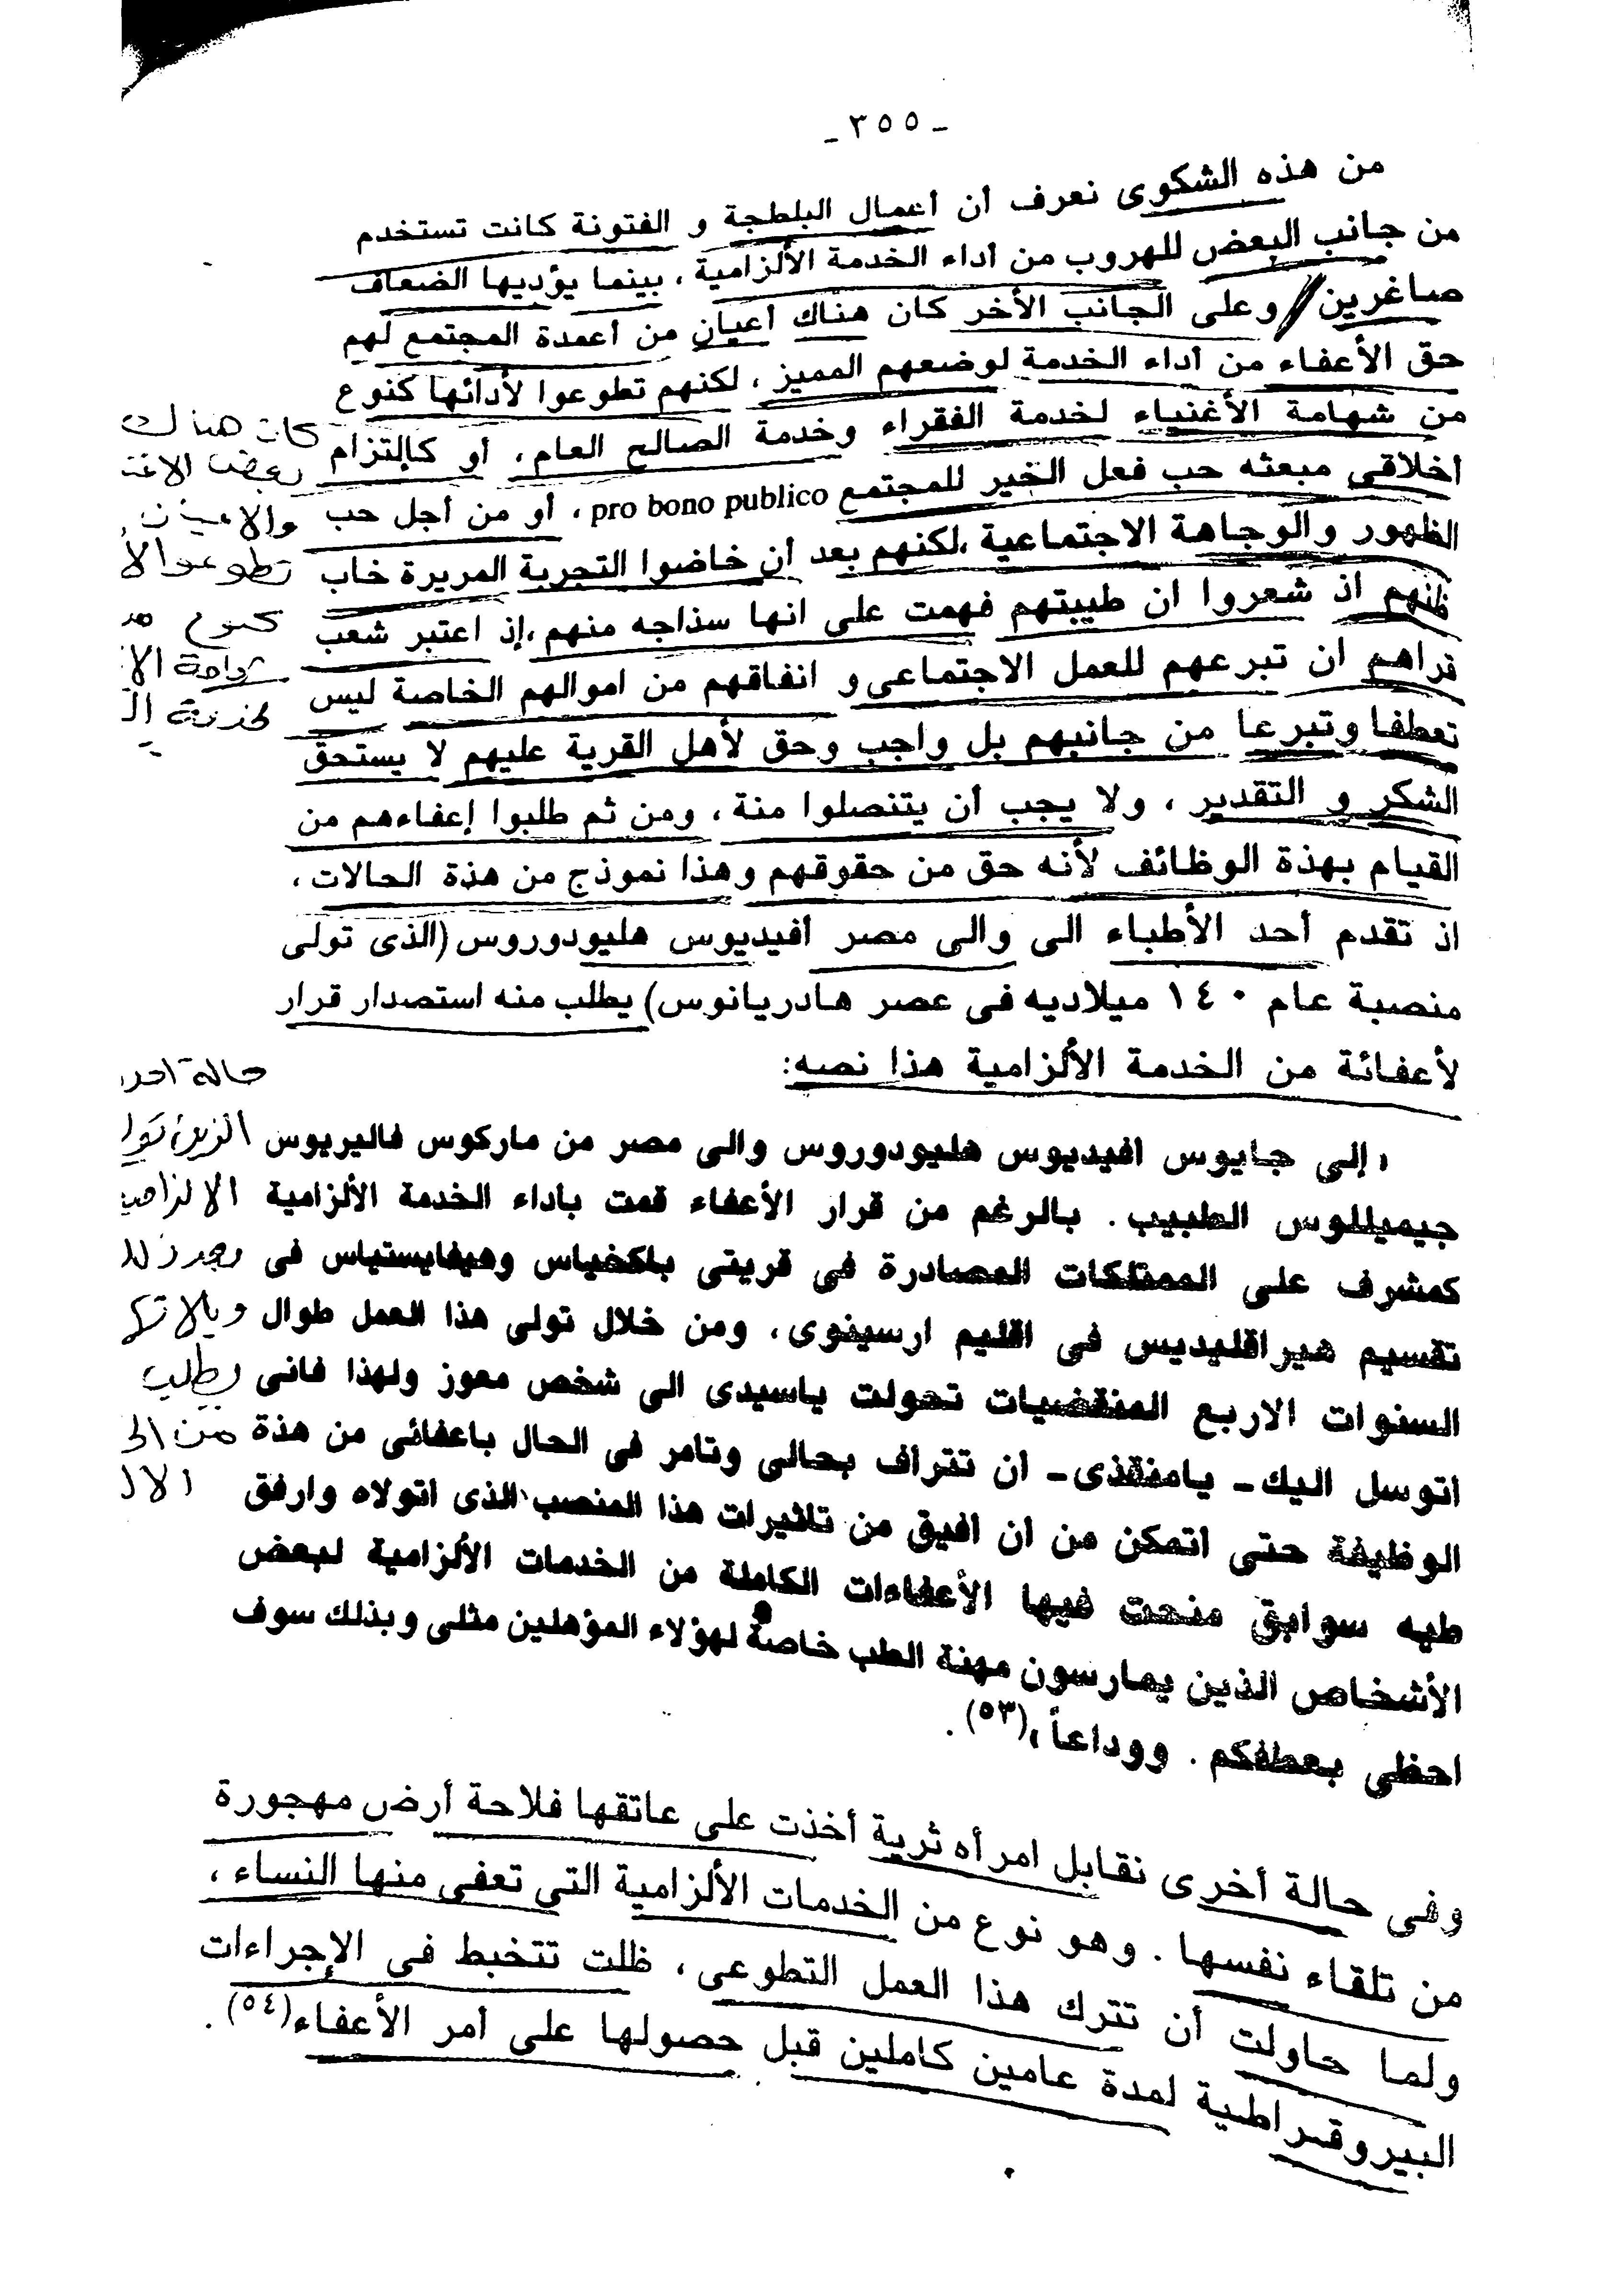 ـ ٣٥٥ ـ
من هذه الشكوى نعرف أن أعمال البلطجة و الفتونة كانت تستخدم
من جانب البعض للهروب من أداء الخدمة الألزامية ، بينما يؤديها الضعاف
صاغرين / وعلى الجانب الأخر كان هناك أعيان من أعمدة المجتمع لهم
حق الأعفاء من أداء الخدمة لوضعهم المميز ، لكنهم تطوعوا لأدائها كنوع
من شهامة الأغنياء لخدمة الفقراء وخدمة الصالح العام ، أو كإلتزام
أخلاقى مبعثه حب فعل الخير للمجتمع pro bono publico ، أو من أجل حب
الظهور والوجاهة الاجتماعية ،لكنهم بعد أن خاضوا التجربة المريرة خاب
ظنهم اذ شعروا ان طيبتهم فهمت على انها سذاجه منهم ،إذ اعتبر شعب
قراهم ان تبرعهم للعمل الاجتماعى و انفاقهم من اموالهم الخاصة ليس
تعطفا وتبرعا من جانبهم بل واجب وحق لأهل القرية عليهم لا يستحق
الشكر و التقدير ، ولا يجب أن يتنصلوا منة ، ومن ثم طلبوا إعفاءهم من
القيام بهذة الوظائف لأنه حق من حقوقهم وهذا نموذج من هذة الحالات ،
اذ تقدم أحد الأطباء الى والى مصر أفيديوس هليودوروس (الذى تولى
منصبة عام ١٤٠ ميلاديه فى عصر هادريانوس) يطلب منه استصدار قرار
لأعفائة من الخدمة الألزامية هذا نصه:
، إلى جايوس افيديوس هليودوروس والى مصر من ماركوس فاليريوس
جيميللوس الطبيب . بالرغم من قرار الأعفاء قمت بأداء الخدمة الألزامية
كمشرف على الممتلكات المصادرة فى قريتى باكخياس وهيفايستياس فى
تقسيم هيراقليديس فى اقليم ارسينوى ، ومن خلال تولى هذا العمل طوال
السنوات الاربع المنقضيات تحولت ياسيدى الى شخص معوز ولهذا فانى
اتوسل اليك ـ يامنقذى ـ ان تتراف بحالى وتامر فى الحال باعفائى من هذة
الوظيفة حتى اتمكن من ان افيق من تاثيرات هذا المنصب الذى اتولاه وارفق
طيه سوابق منحت فيها الأعفاءات الكاملة من الخدمات الألزامية لبعض
الأشخاص الذين يمارسون مهنة الطب خاصة لهؤلاء المؤهلين مثلى وبذلك سوف
احظى بعطفكم . ووداعاً ،(٥٣) .
وفى حالة أخرى نقابل امرأه ثرية أخذت على عاتقها فلاحة أرض مهجورة
من تلقاء نفسها . وهو نوع من الخدمات الألزامية التى تعفى منها النساء ،
ولما حاولت أن تترك هذا العمل التطوعى ، ظلت تتخبط فى الإجراءات
البيروقراطية لمدة عامين كاملين قبل حصولها على أمر الأعفاء(٥٤) .
كان هناك
والاعيان
كنوع
حالة
يطلب